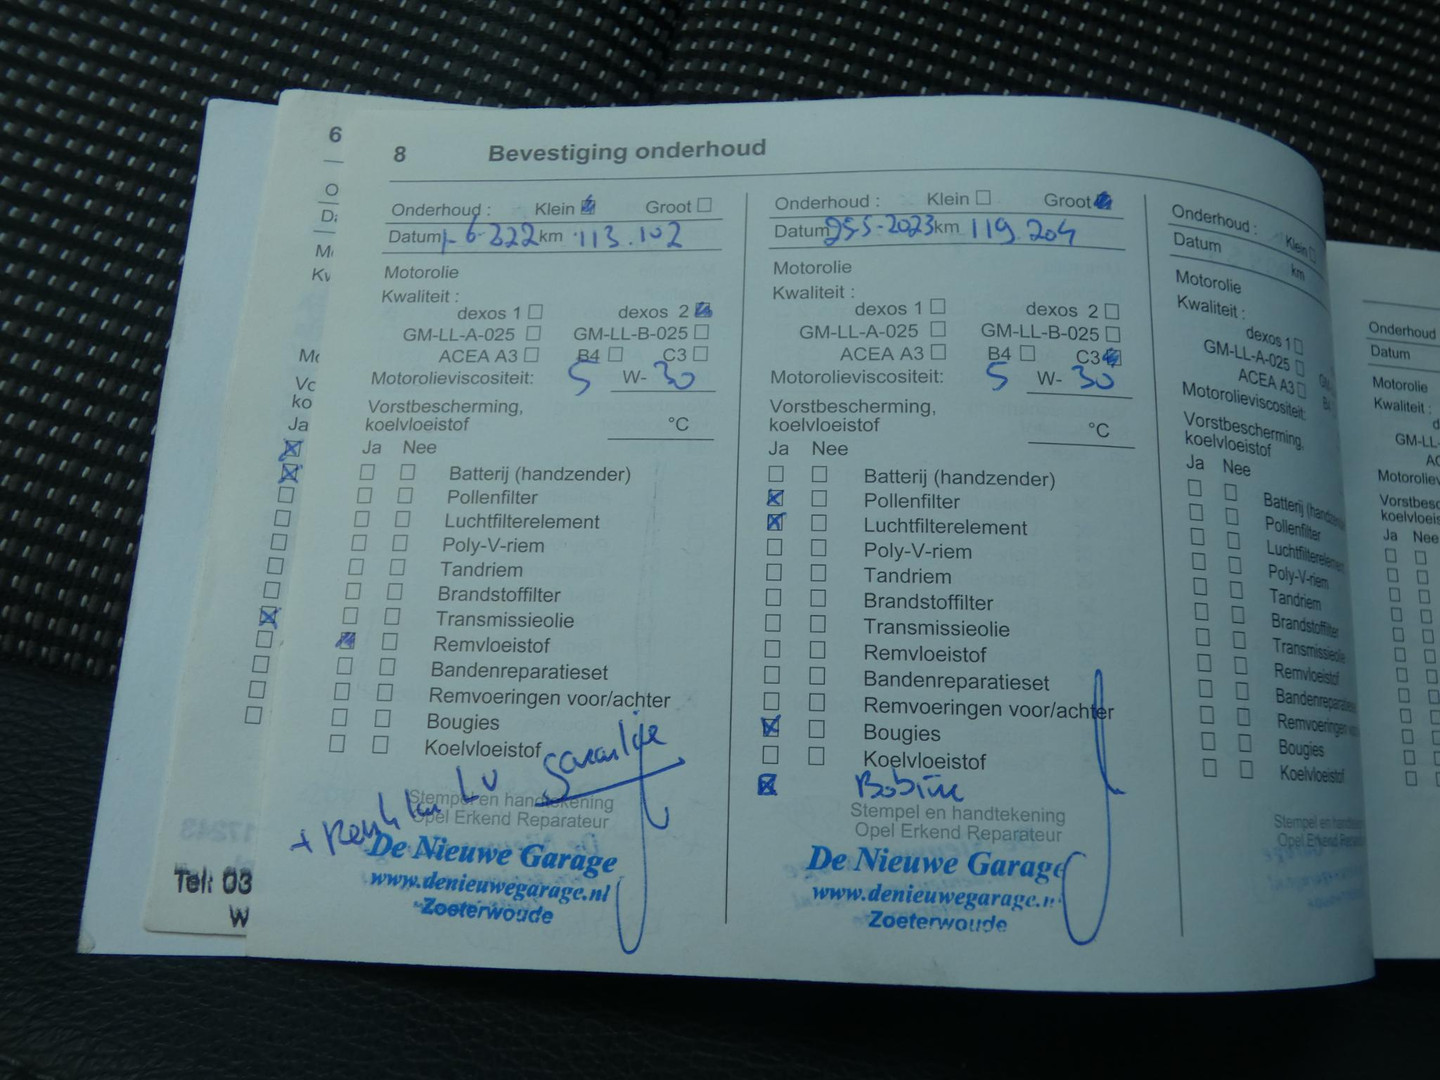 6
8 Bevestiging onderhoud
Onderhoud : Klein Groot
Datum 1-6-222 km 113.102
Motorolie
Kwaliteit :
dexos 1 dexos 2
GM-LL-A-025 GM-LL-B-025
ACEA A3 B4 C3
Motorolieviscositeit: 5 W- 30
Vorstbescherming,
koelvloeistof °C
Ja Nee
Batterij (handzender)
Pollenfilter
Luchtfilterelement
Poly-V-riem
Tandriem
Brandstoffilter
Transmissieolie
Remvloeistof
Bandenreparatieset
Remvoeringen voor/achter
Bougies
Koelvloeistof
Stempel en handtekening
Opel Erkend Reparateur
De Nieuwe Garage
www.denieuwegarage.nl
Zoeterwoude
Onderhoud : Klein Groot
Datum 25-5-2023 km 119.204
Motorolie
Kwaliteit :
dexos 1 dexos 2
GM-LL-A-025 GM-LL-B-025
ACEA A3 B4 C3
Motorolieviscositeit: 5 W- 30
Vorstbescherming,
koelvloeistof °C
Ja Nee
Batterij (handzender)
Pollenfilter
Luchtfilterelement
Poly-V-riem
Tandriem
Brandstoffilter
Transmissieolie
Remvloeistof
Bandenreparatieset
Remvoeringen voor/achter
Bougies
Koelvloeistof
Bobine
Stempel en handtekening
Opel Erkend Reparateur
De Nieuwe Garage
www.denieuwegarage.n
Zoeterwoude
Onderhoud : Klein
Datum km
Motorolie
Kwaliteit :
dexos 1
GM-LL-A-025
ACEA A3
Motorolieviscositeit:
Vorstbescherming,
koelvloeistof
Ja Nee
Batterij (handzender
Pollenfilter
Luchtfilterelement
Poly-V-riem
Tandriem
Brandstoffilter
Transmissieolie
Remvloeistof
Bandenreparaties
Remvoeringen vo
Bougies
Koelvloeistof
Stempel en handteken
Opel Erkend Repara
Onderhoud
Datum
Motorolie
Kwaliteit :
GM-LL-
Motoroliev
Vorstbesc
koelvloeis
Ja Nee
Ja
Tel: 03
W